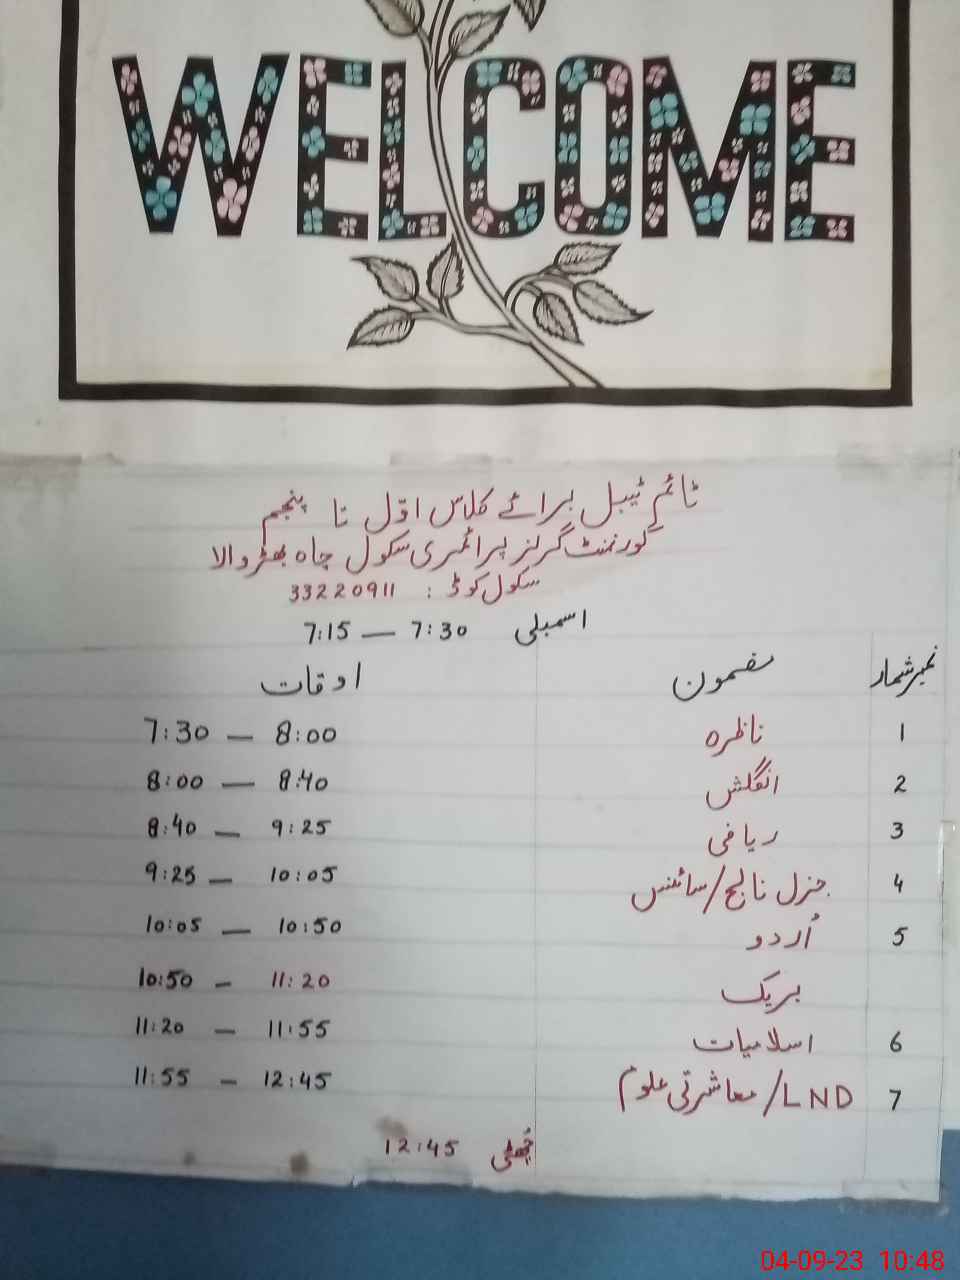 WELCOME
ٹائم ٹیبل برائے کلاس اوّل تا پنجم
گورنمنٹ گرلز پرائمری سکول چاہ بھٹروالا
سکول کوڈ : 33220911
اسمبلی 7:15 — 7:30
نمبر شمار مضمون اوقات
1 ناظرہ 7:30 — 8:00
2 انگلش 8:00 — 8:40
3 ریاضی 8:40 — 9:25
4 جنرل نالج/سائنس 9:25 — 10:05
5 اُردو 10:05 — 10:50
بریک 10:50 – 11:20
6 اسلامیات 11:20 – 11:55
7 LND/معاشرتی علوم 11:55 – 12:45
چُھٹی 12:45
04-09-23 10:48